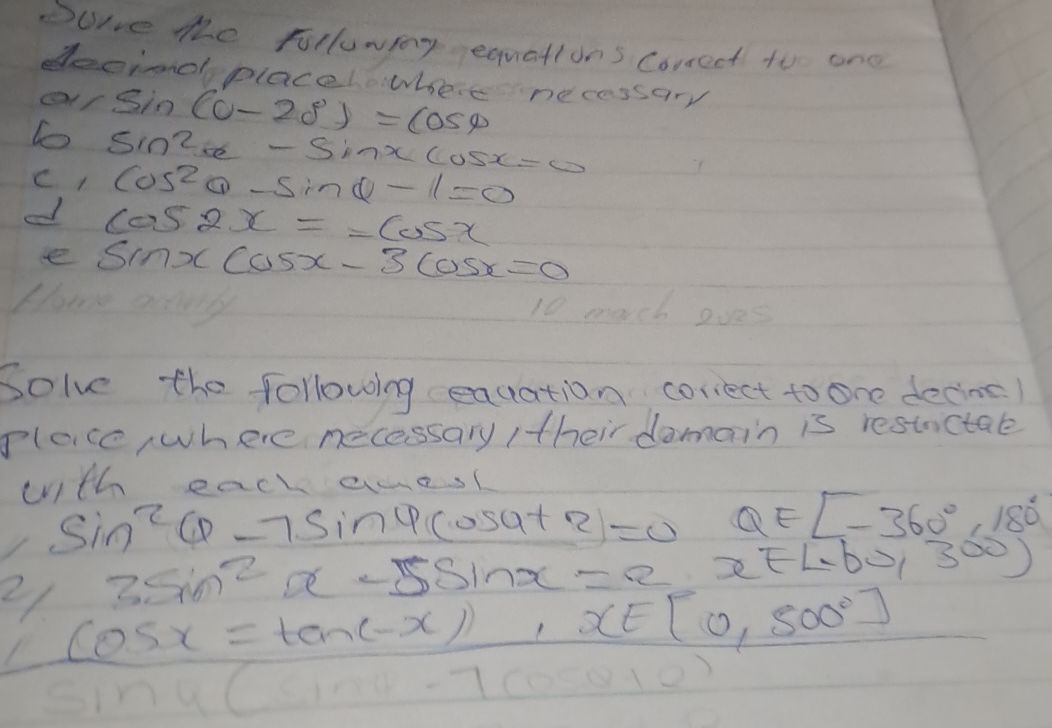 Solve the Following equations correct to one
decimal place where necessary
a, Sin (θ - 28) = Cosθ
b Sin²x - Sinx Cosx = 0
c, Cos²θ - sinθ - 1 = 0
d Cos 2x = - Cosx
e Sinx Cosx - 3 Cosx = 0
Home 10 march 2025
Solve the following equation correct to one decimal
place, where necessary, their domain is restrictate
with each
, Sin²θ - 7Sinθ Cosθ + 2) = 0 θ ∈ [-360°, 180°
2/ 3Sin² x - 5Sinx = 2 x ∈ [-60, 300)
/ Cosx = tan(-x)) , x ∈ [0, 500°]